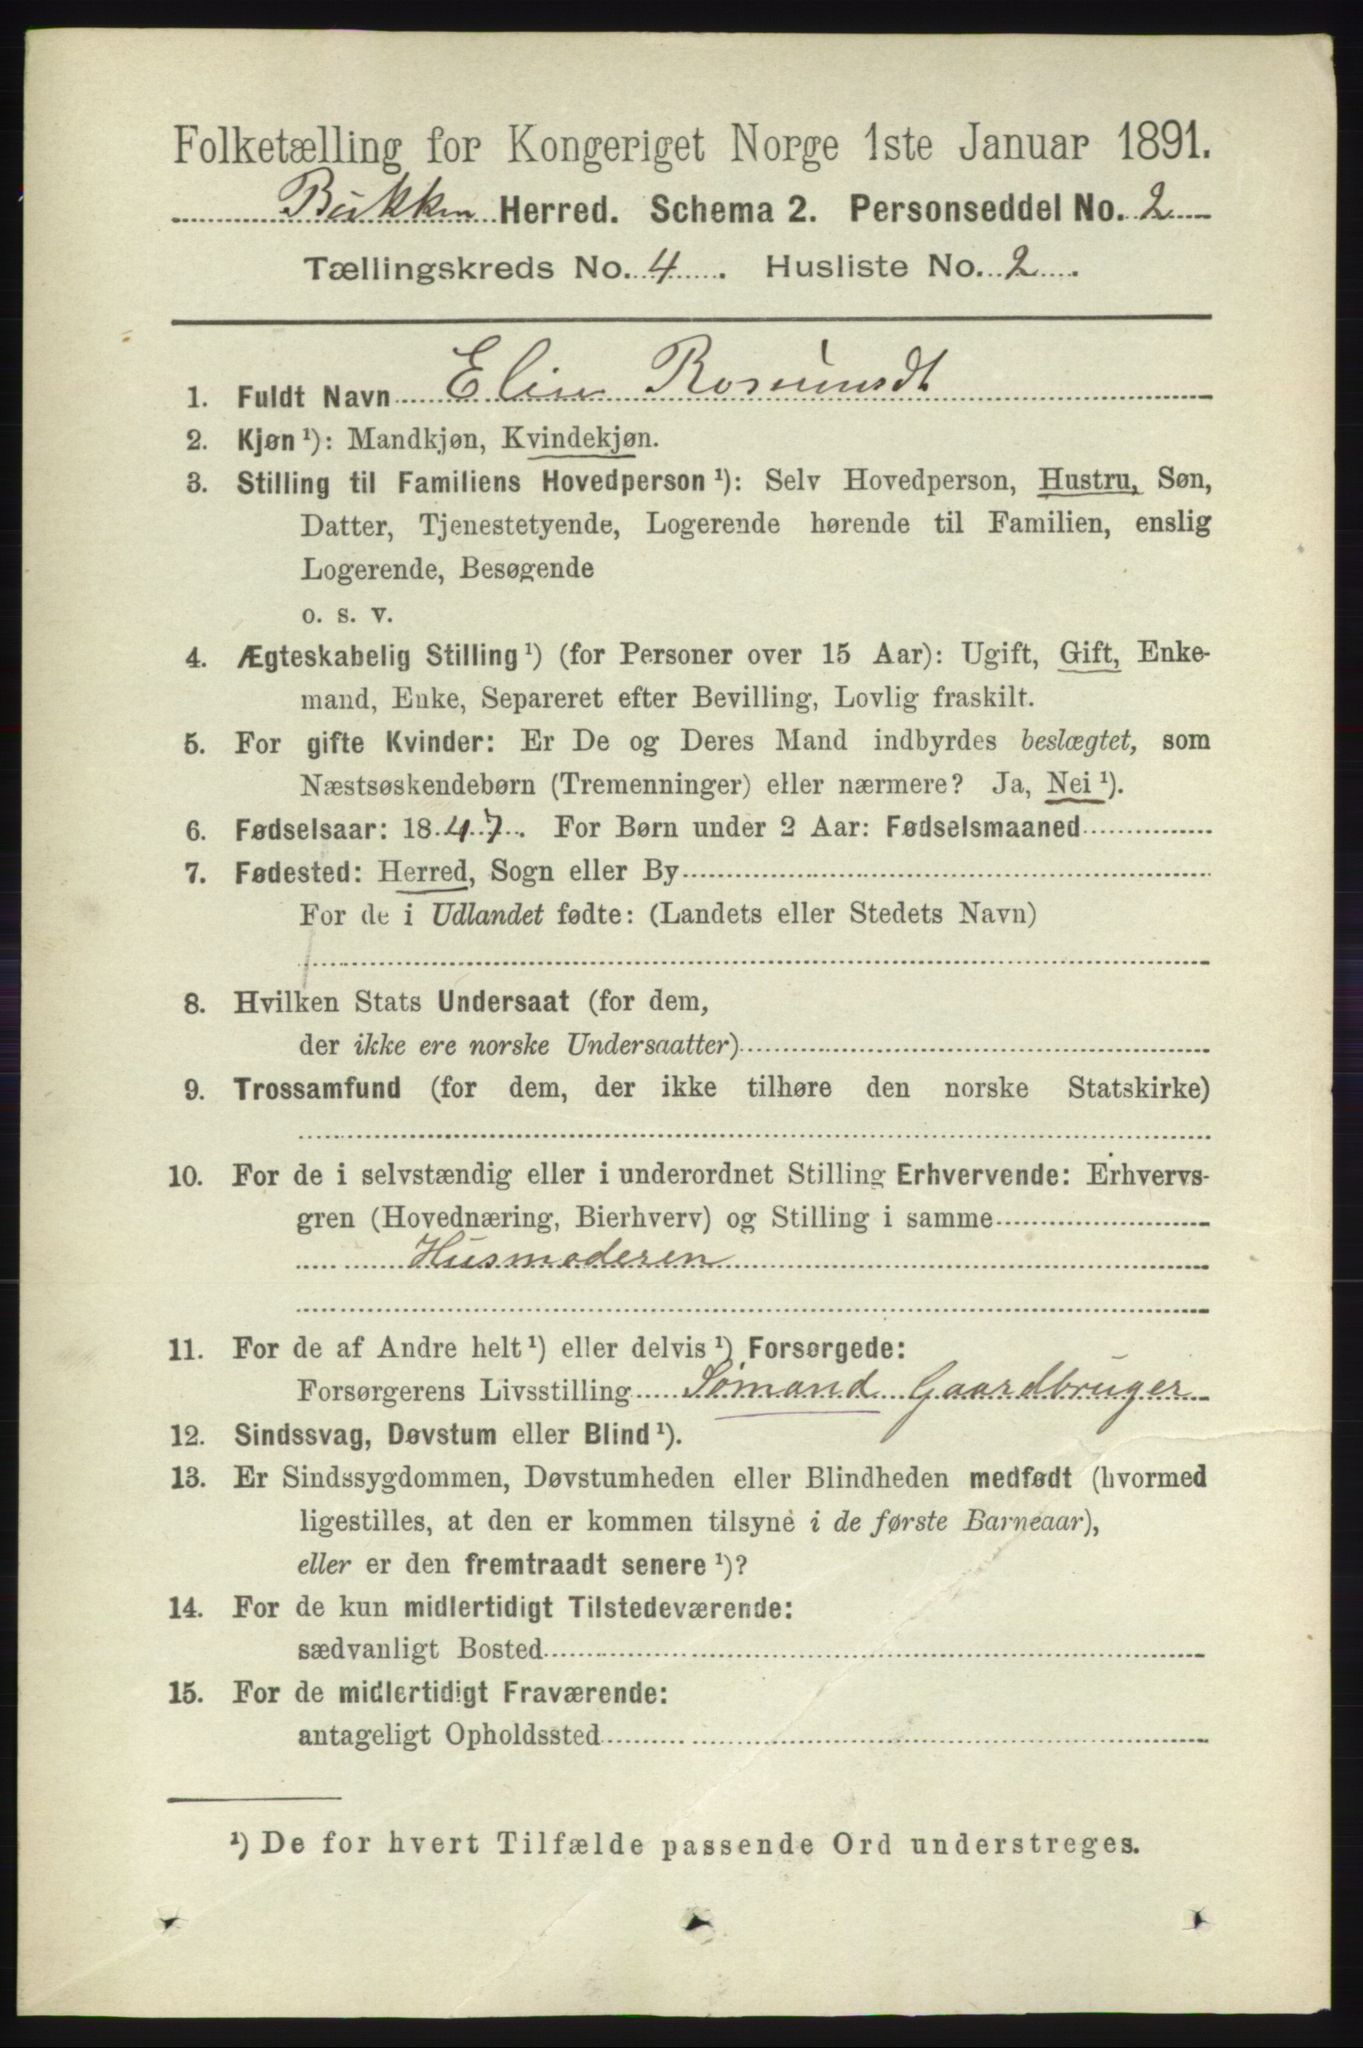 Folketælling for Kongeriget Norge 1ste Januar 1891.
Bukken Herred. Schema 2. Personseddel No. 2
Tællingskreds No. 4. Husliste No. 2.
1. Fuldt Navn Elin
2. Kjøn ¹): Mandkjøn, Kvindekjøn.
3. Stilling til Familiens Hovedperson ¹): Selv Hovedperson, Hustru, Søn,
Datter, Tjenestetyende, Logerende hørende til Familien, enslig
Logerende, Besøgende
o. s. v.
4. Ægteskabelig Stilling ¹) (for Personer over 15 Aar): Ugift, Gift, Enke-
mand, Enke, Separeret efter Bevilling, Lovlig fraskilt.
5. For gifte Kvinder: Er De og Deres Mand indbyrdes beslægtet, som
Næstsøskendebørn (Tremenninger) eller nærmere? Ja, Nei ¹).
6. Fødselsaar: 1847. For Børn under 2 Aar: Fødselsmaaned
7. Fødested: Herred, Sogn eller By
For de i Udlandet fødte: (Landets eller Stedets Navn)
8. Hvilken Stats Undersaat (for dem,
der ikke ere norske Undersaatter)
9. Trossamfund (for dem, der ikke tilhøre den norske Statskirke)
10. For de i selvstændig eller i underordnet Stilling Erhvervende: Erhvervs-
gren (Hovednæring, Bierhverv) og Stilling i samme
Husmoderen
11. For de af Andre helt ¹) eller delvis ¹) Forsørgede:
Forsørgerens Livsstilling Sømand Gaardbruger
12. Sindssvag, Døvstum eller Blind ¹).
13. Er Sindssygdommen, Døvstumheden eller Blindheden medfødt (hvormed
ligestilles, at den er kommen tilsyne i de første Barneaar),
eller er den fremtraadt senere ¹)?
14. For de kun midlertidigt Tilstedeværende:
sædvanligt Bosted
15. For de midlertidigt Fraværende:
antageligt Opholdssted
¹) De for hvert Tilfælde passende Ord understreges.